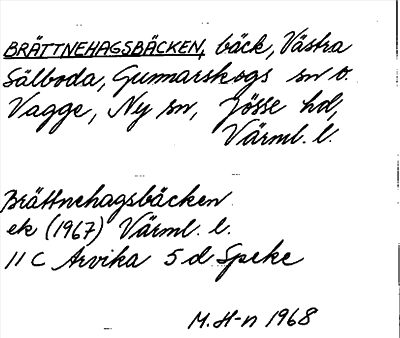 BRÄTTNEHAGSBÄCKEN, bäck, Västra
Sälboda, Gunnarskogs sn o.
Vagge, Ny sn, Jösse hd,
Värml. l.
Brättnehagsbäcken
ek (1967) Värml. l.
11 C Arvika 5 d Speke
M. H-n 1968